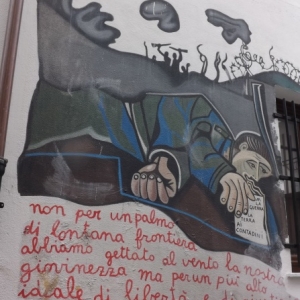 LA
TERRA
AI
CONTADINI
non per un palmo
di lontana frontiera
abbiamo gettato al vento la nostra
giovinezza ma per un più alto
ideale di libertà